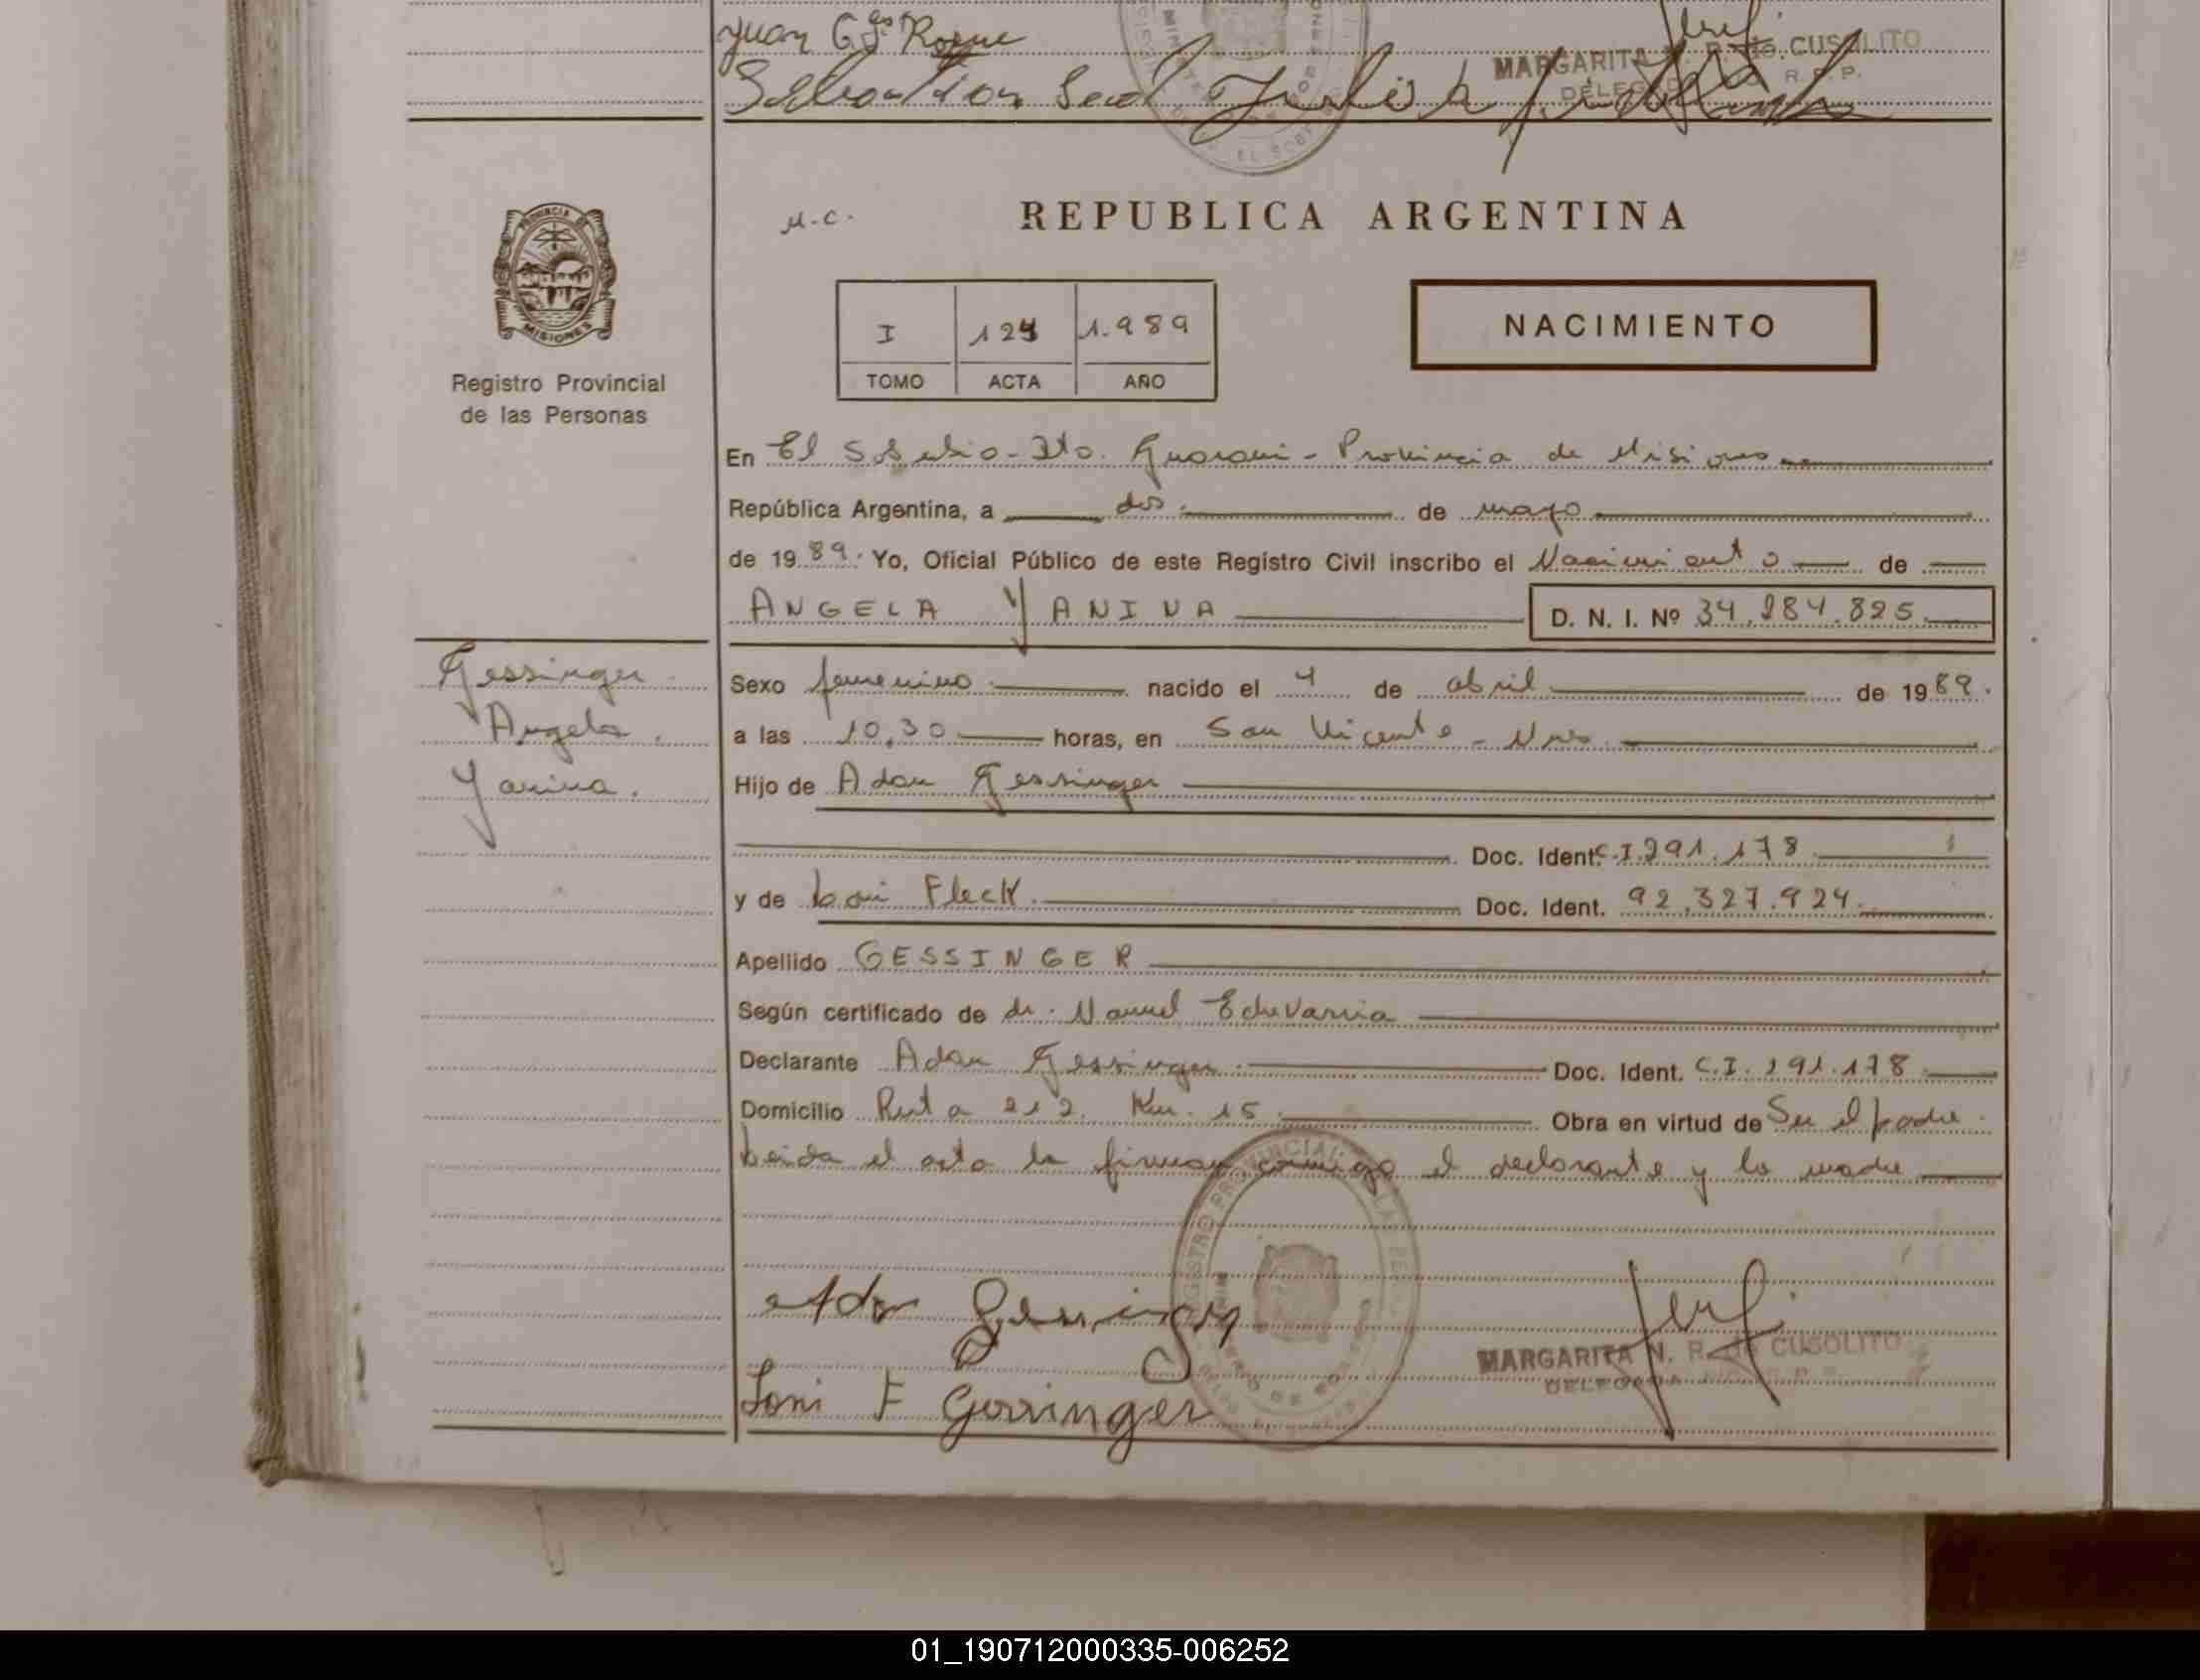 Juan
MARGARITA N. R. de CUSOLITO
REPUBLICA ARGENTINA
M.C.
PROVINCIA
MISIONES
Registro Provincial
de las Personas
I 1.989
TOMO ACTA AÑO
NACIMIENTO
En El Soberbio - Dto. Guaraní - Provincia de Misiones
República Argentina, a dos de mayo
de 1989. Yo, Oficial Público de este Registro Civil inscribo el Nacimiento de
ANGELA YANINA D. N. I. Nº 34.284.825
Gessinger
Angela
Yanina.
Sexo femenino nacido el 4 de abril de 1989.
a las 10,30 horas, en San Vicente - Mnes.
Hijo de Adan Gessinger
Doc. Ident. C.I. 291.178
y de Loni Fleck Doc. Ident. 92.327.924
Apellido GESSINGER
Según certificado de dr. Manuel Echevarria
Declarante Adan Gessinger Doc. Ident. C.I. 291.178
Domicilio Ruta 212 Km. 15 Obra en virtud de Ser el padre.
Leida el acta la firman conmigo el declarante y la madre
Adan Gessinger
MARGARITA N. R. de CUSOLITO
DELEGADA
Loni F Gessinger
01_190712000335-006252